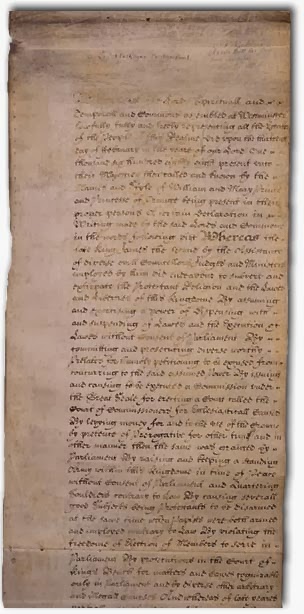 Lords Spirituall and
Temporall and Commons assembled at Westminster
lawfully fully and freely representing all the Estates
of the People of this Realme did upon the thirteenth
day of February in the yeare of our Lord One
thousand six hundred eighty eight present unto
their Majesties then called and known by the
Names and Stile of William and Mary Prince
and Princesse of Orange being present in their
proper persons A certain Declaration in
Writing made by the said Lords and Commons
in the words following viz Whereas the
late King James the Second by the Assistance
of diverse evill Councellors Judges and Ministers
imployed by him did endeavour to subvert and
extirpate the Protestant Religion and the Lawes
and Liberties of this Kingdome By assuming
and exercising a power of dispensing with
and suspending of Lawes and the Execution of
Lawes without Consent of Parliament By
committing and prosecuting diverse worthy
Prelates for humbly petitioning to be excused from
concurring to the said assumed Power By issuing
and causing to be executed a Commission under
the Great Seale for erecting a Court called the
Court of Commissioners for Ecclesiasticall Causes
By levying money for and to the use of the Crowne
by pretence of Prerogative for other time and in
other manner then the same was granted by
Parliament By raising and keeping a standing
Army within this Kingdome in time of Peace
without Consent of Parliament and Quartering
Souldiers contrary to Law By causing severall
good Subjects being Protestants to be disarmed
at the same time when Papists were both armed
and imployed contrary to Law By violating the
freedome of Election of Members to serve in
Parliament By prosecutions in the Court of
Kings Bench for matters and Causes cognizable
only in Parliament and by diverse other arbitrary
and illegall Courses And whereas of late yeares